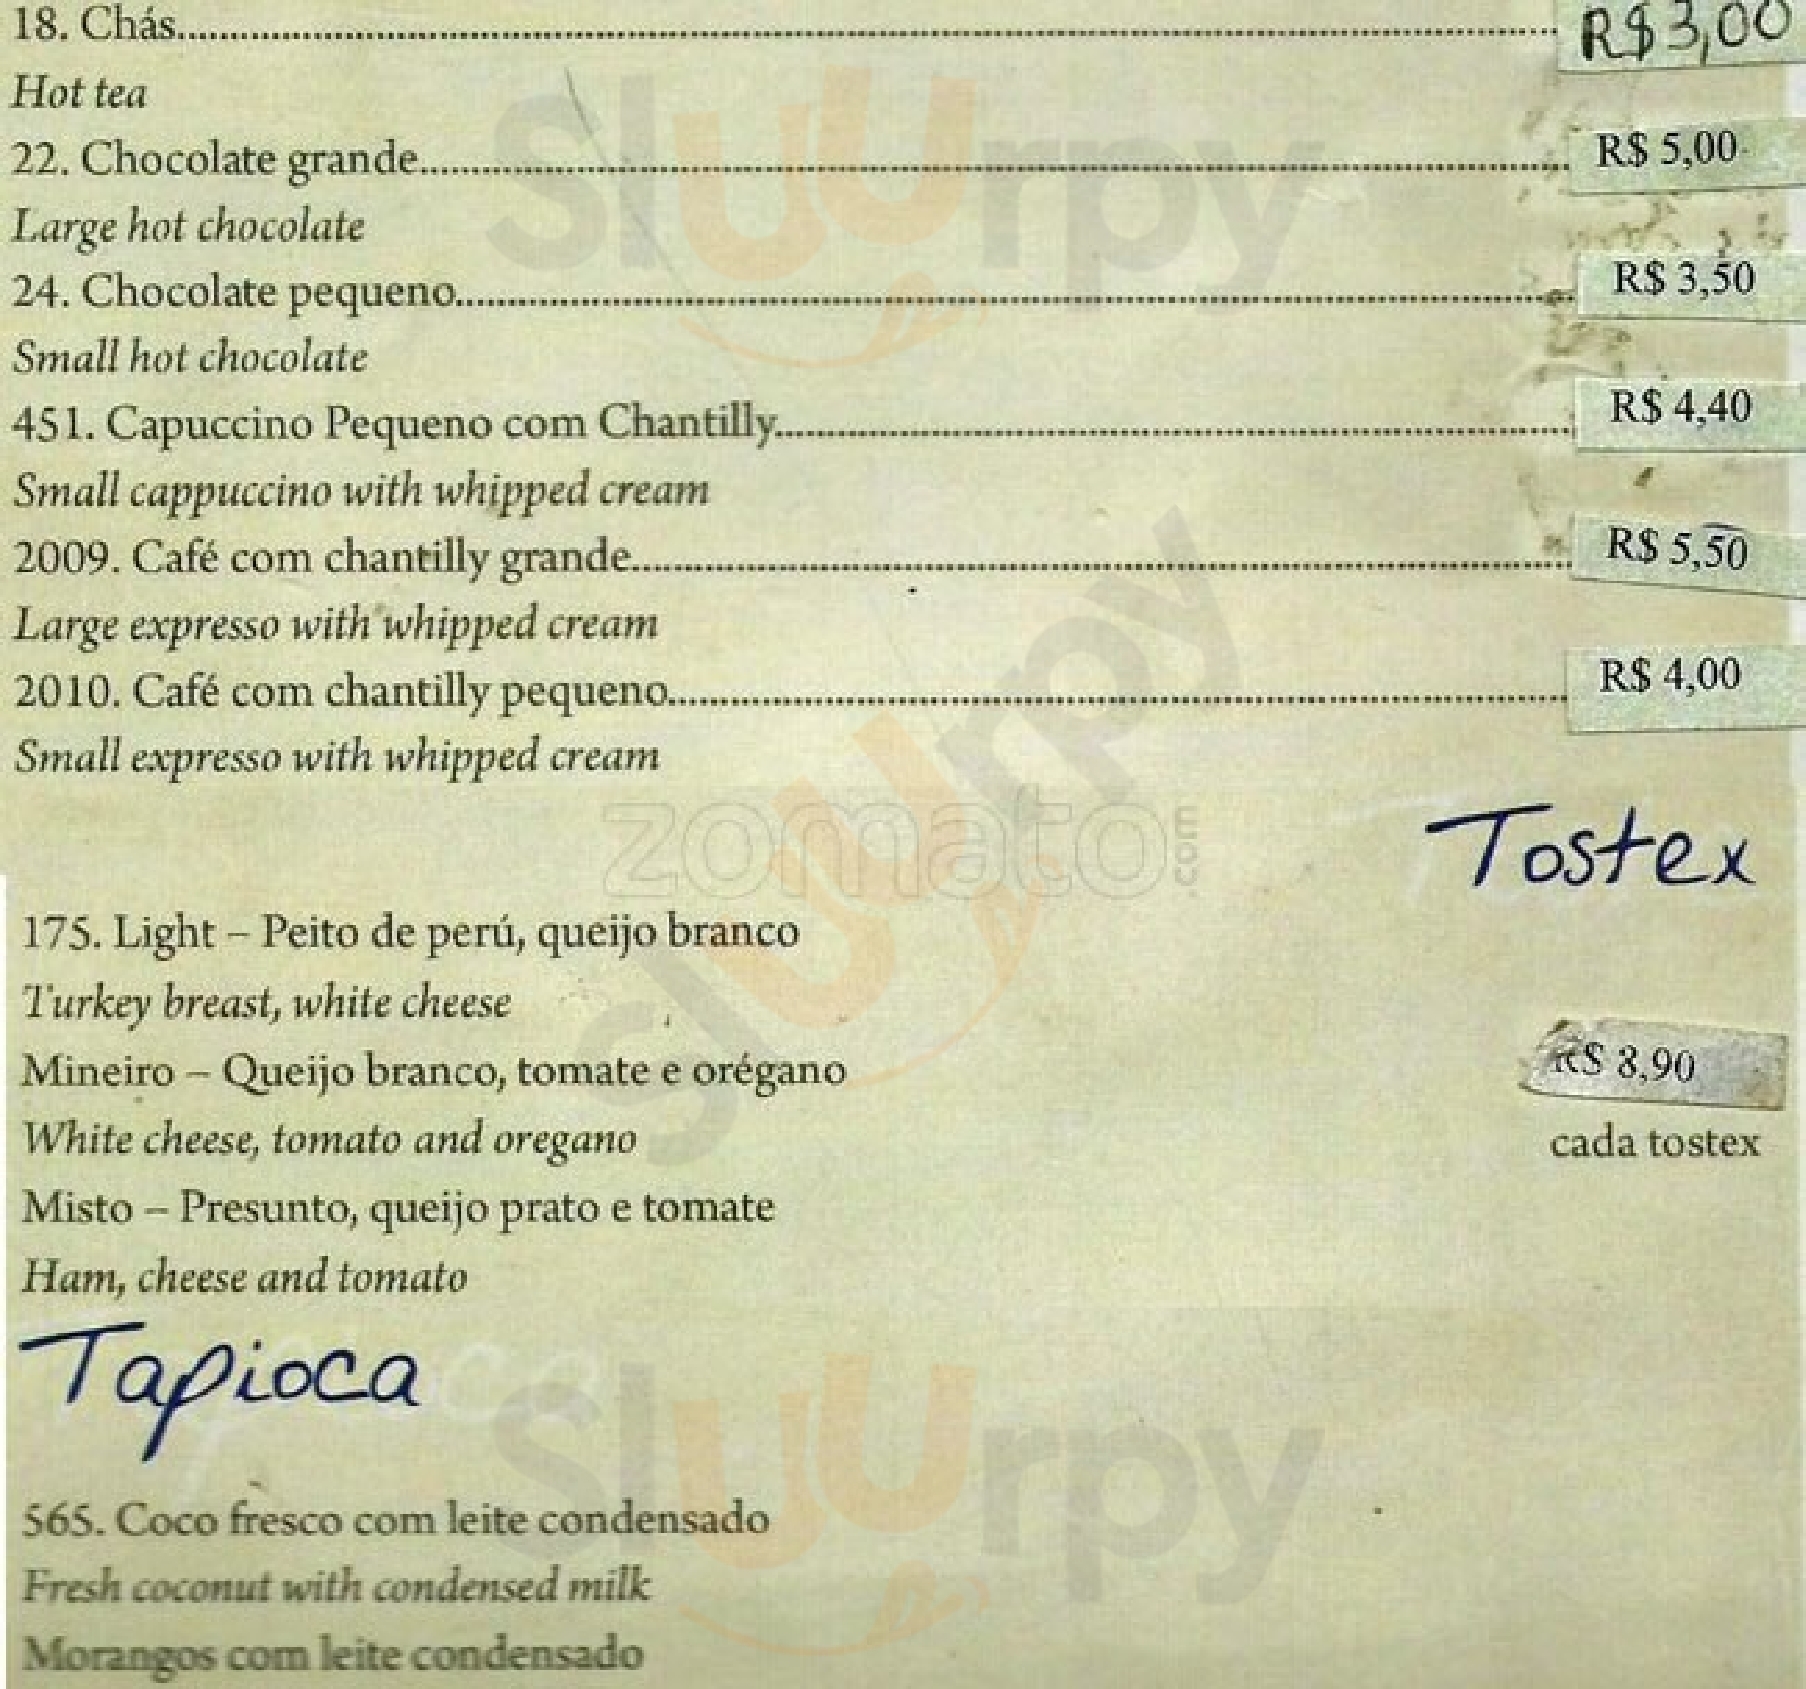 18. Chás.......... R$3,00
Hot tea
22. Chocolate grande.......... R$ 5,00
Large hot chocolate
24. Chocolate pequeno.......... R$ 3,50
Small hot chocolate
451. Capuccino Pequeno com Chantilly.......... R$ 4,40
Small cappuccino with whipped cream
2009. Café com chantilly grande.......... R$ 5,50
Large expresso with whipped cream
2010. Café com chantilly pequeno.......... R$ 4,00
Small expresso with whipped cream
zomato.com
Tostex
175. Light – Peito de perú, queijo branco
Turkey breast, white cheese
Mineiro – Queijo branco, tomate e orégano R$ 8,90
White cheese, tomato and oregano cada tostex
Misto – Presunto, queijo prato e tomate
Ham, cheese and tomato
Tapioca
565. Coco fresco com leite condensado
Fresh coconut with condensed milk
Morangos com leite condensado
Sluurpy
Sluurpy
Sluurpy